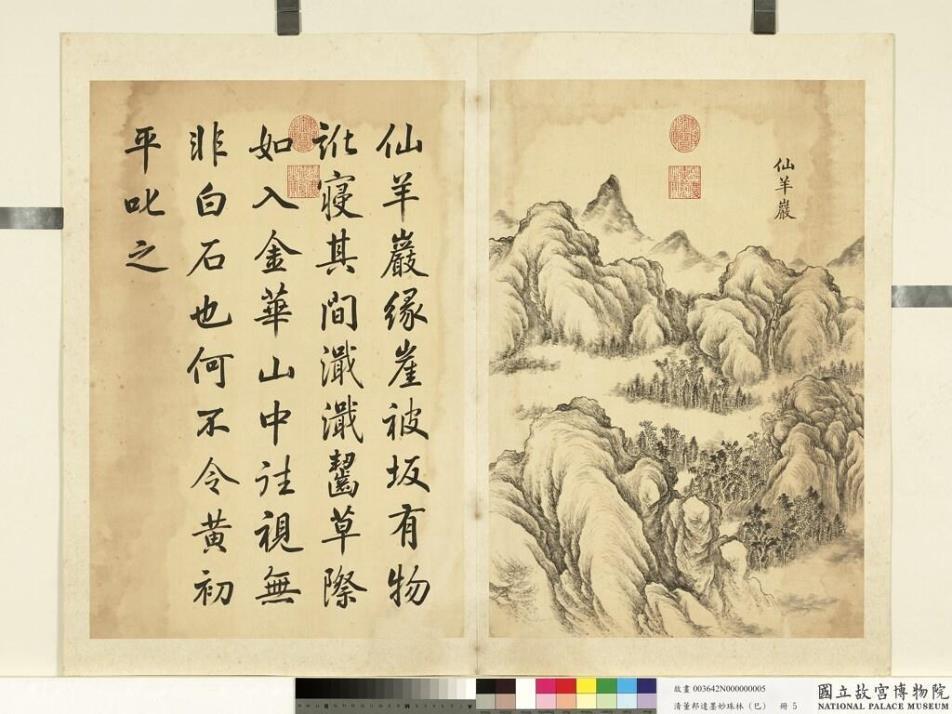 仙羊巖
仙羊巖緣崖被坂有物
訛寢其間濈濈齧草際
如入金華山中往視無
非白石也何不令黃初
平叱之
故畫 003642N000000005
清董邦達墨妙珠林（巳） 冊 5
國立故宮博物院
NATIONAL PALACE MUSEUM